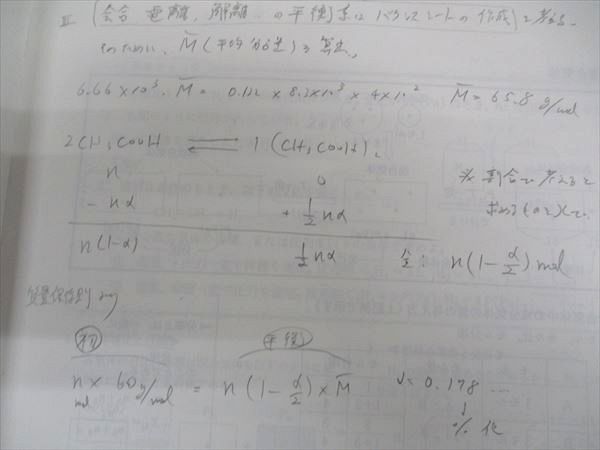 III (会合, 電離, 解離 の平衡)系はバランスシートの作成して考える。
そのために、M̄(平均分子量)を算出。
6.66×10³・M̄ = 0.122 × 8.3×10³ × 4×10² M̄ = 65.8 g/mol
2CH₃COOH ⇄ 1 (CH₃COOH)₂
n 0 ※ 割合で考えると
-nα +½nα 求める
n(1-α) ½nα 全: n(1-α/2) mol
質量保存則より
初 平衡
n × 60 g/mol = n(1-α/2)×M̄ α=0.178 …
mol ↓
%化